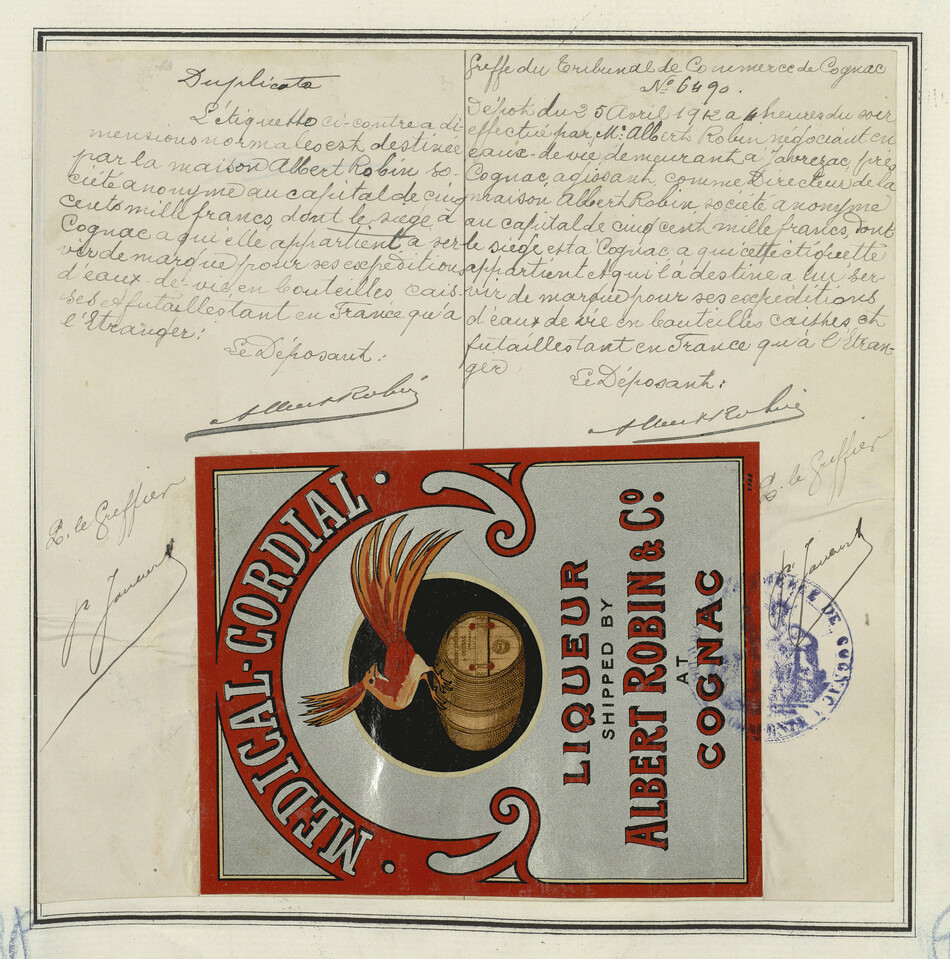 Duplicata
L'étiquette ci-contre a di-
mensions normales est destinée
par la maison Albert Robin so-
ciété anonyme au capital de cinq
cents mille francs, dont le siège a
Cognac a qui elle appartient a ser-
vir de marque pour ses expéditions
d'eaux-de-vie en bouteilles cais-
ses et futailles tant en France qu'a
l'Etranger:
Le Déposant:
Albert Robin
P. le Greffier
Greffe du Tribunal de Commerce de Cognac
No 6490.
Dépôt du 25 Avril 1912 a 4 heures du soir
effectué par Mr Albert Robin négociant en
eaux-de-vie, demeurant a Javrezac, près
Cognac, agissant comme Directeur de la
maison Albert Robin, société anonyme
au capital de cinq cent mille francs, dont
le siège est a Cognac a qui cette étiquette
appartient et qui la destine a lui ser-
vir de marque pour ses expéditions
d'eaux de vie en bouteilles caisses, et
futailles tant en France qu'à l'Etran-
ger
Le Déposant:
Albert Robin
P. le Greffier
MEDICAL-CORDIAL
LIQUEUR
SHIPPED BY
ALBERT ROBIN & Co.
AT
COGNAC
DE COGNAC